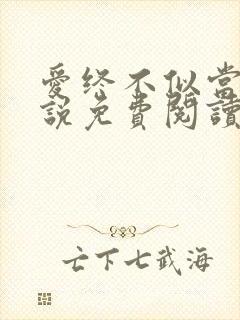 愛终不似當
說免費閱讀
亡下七武海